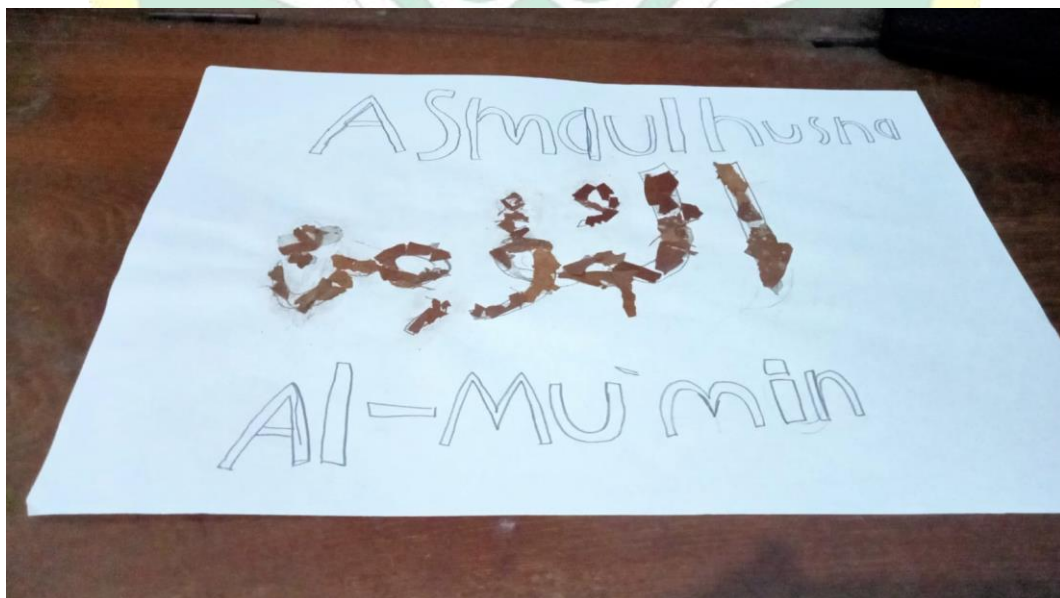 ASmaulhusna
المؤمن
Al-Mu'min